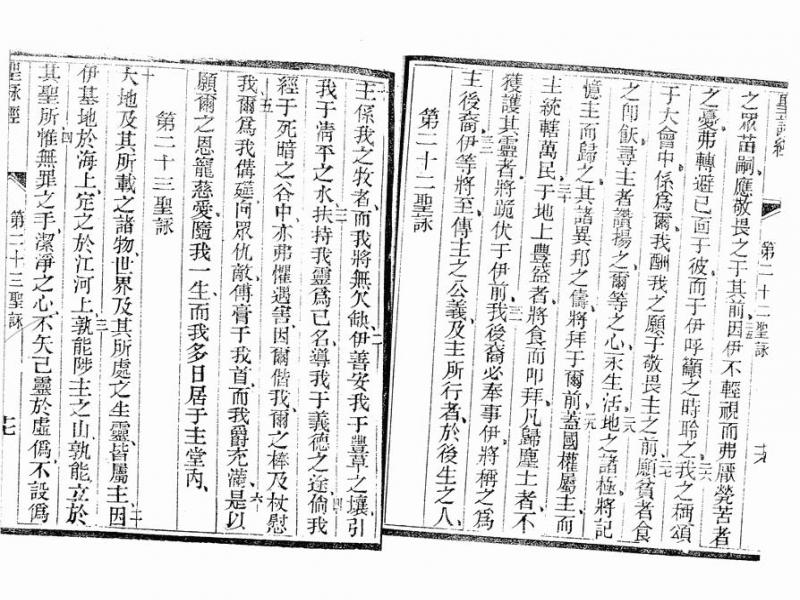 聖詠經 第二十二聖詠
之眾苗嗣應敬畏之于其前因伊不輕視而弗厭煢苦者
之憂弗轉避已面于彼而于伊呼籲之時聆之我之稱頌
于大會中係為爾我酬我之願于敬畏主之前願貧者食
之卽飫尋主者讚揚之爾等之心永生活地之諸極將記
憶主而歸之其諸異邦之儔將拜于爾前蓋國權屬主而
主統轄萬民于地上豐者將食而叩拜凡歸塵土者不
獲護其靈者將跪伏于伊前我後裔必奉事伊將稱之為
主後裔伊等將至傳主之公義及主所行者於後生之人
第二十二聖詠
主係我之牧者而我將無欠缺伊善安我于豐草之壤引
我于清平之水扶持我靈為己名導我于義德之途倘我
經于死暗之谷中亦弗懼遇害因爾偕我爾之棒及杖慰
我爾為我備筵向眾仇敵傅膏于我首而我爵充滿是以
願爾之恩寵慈愛隨我一生而我多日居于主堂丙
第二十三聖詠
大地及其所載之諸物世界及其所處之生靈皆屬主因
伊基地於海上定之於江河上孰能陟主之山孰能立於
其聖所惟無罪之手潔淨之心不矢己靈於虛偽不設偽
聖詠經 第二十三聖詠 十七